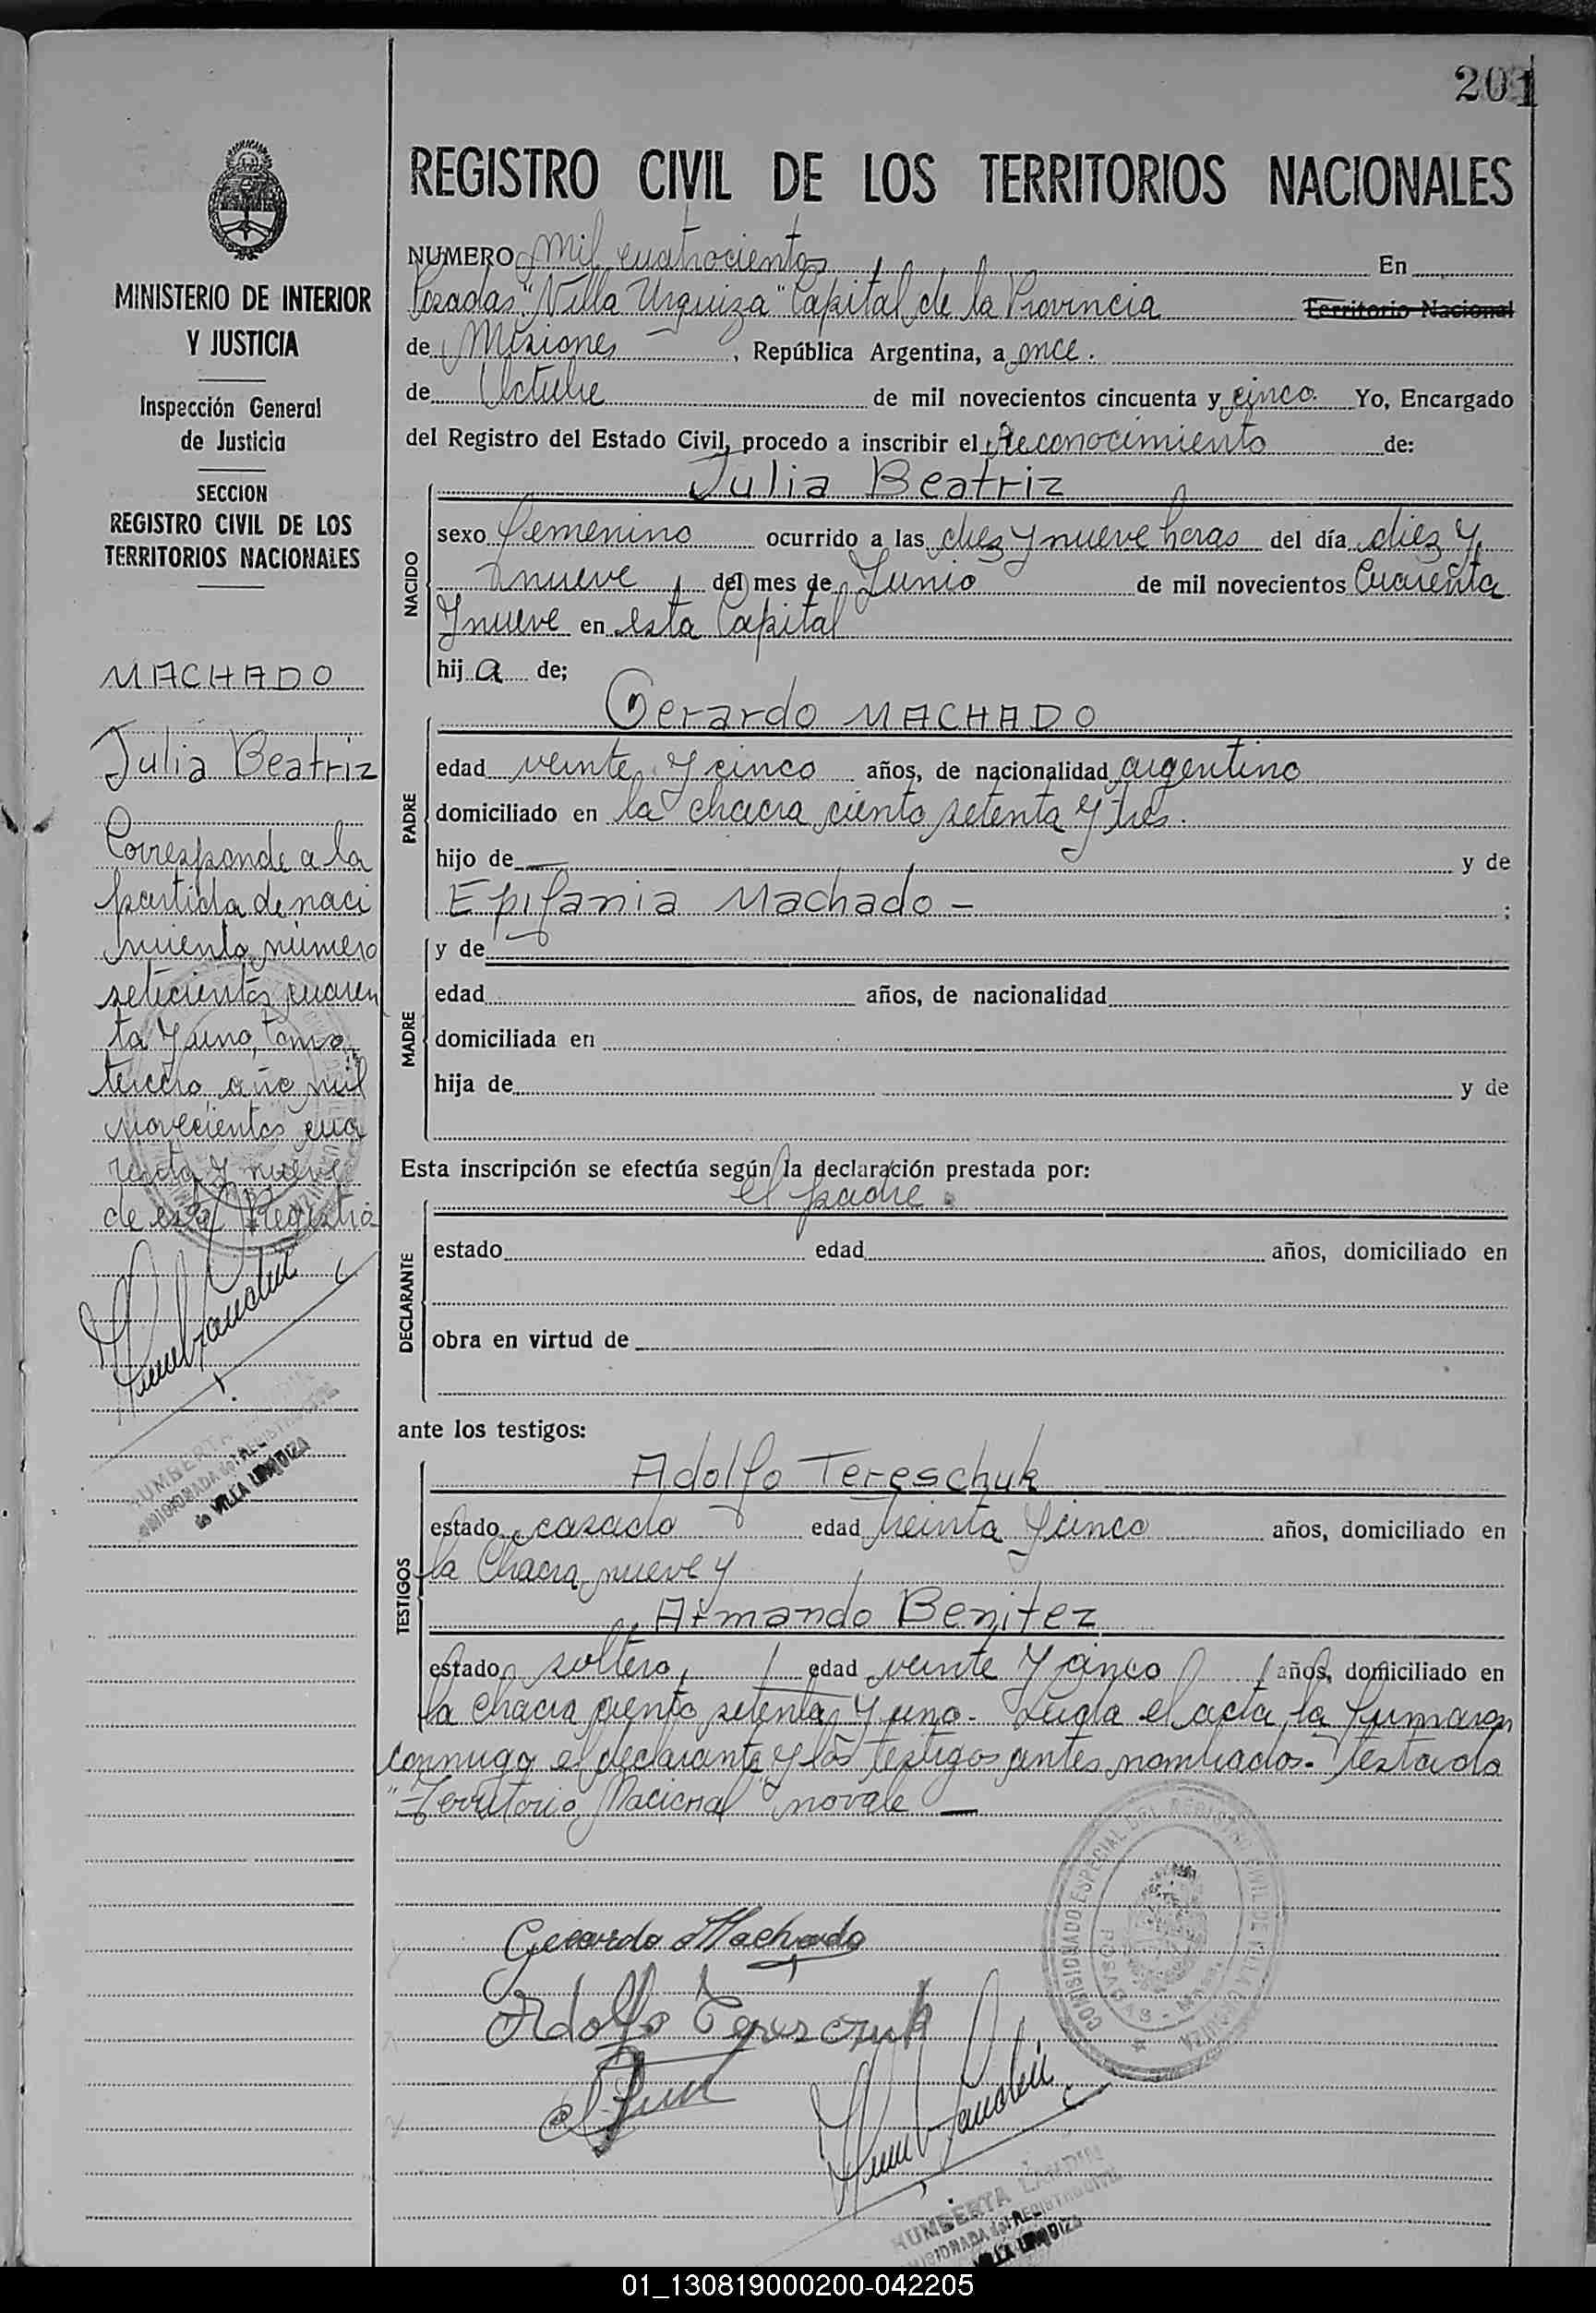 201
REGISTRO CIVIL DE LOS TERRITORIOS NACIONALES
NUMERO Mil cuatrocientos En
Posadas "Villa Urquiza" Capital de la Provincia Territorio Nacional
de Misiones, República Argentina, a once.
de Octubre de mil novecientos cincuenta y cinco. Yo, Encargado
del Registro del Estado Civil, procedo a inscribir el Reconocimiento de:
Julia Beatriz
NACIDO
sexo femenino ocurrido a las diez y nueve horas del día diez y
nueve del mes de Junio de mil novecientos Cuarenta
y nueve en esta Capital
hij a de;
Gerardo MACHADO
PADRE
edad veinte y cinco años, de nacionalidad argentino
domiciliado en la chacra ciento setenta y tres.
hijo de — y de
Epifania Machado - ;
MADRE
y de
edad años, de nacionalidad
domiciliada en
hija de y de
Esta inscripción se efectúa según la declaración prestada por:
el padre.
DECLARANTE
estado edad años, domiciliado en
obra en virtud de
ante los testigos:
Adolfo Tereschuk
TESTIGOS
estado casado edad treinta y cinco años, domiciliado en
la Chacra nueve y
Armando Benitez
estado soltero, edad veinte y cinco años, domiciliado en
la chacra ciento setenta y uno.- Leida el acta, la firmaron
conmigo el declarante y los testigos antes nombrados.- Testado
"Territorio Nacional" no vale —
Gerardo Machado
Adolfo Tereschuk
COMISIONADO ESPECIAL DEL REGISTRO CIVIL DE VILLA URQUIZA
POSADAS - Mnes.
HUMBERTA
COMISIONADA del REGISTRO CIVIL
VILLA URQUIZA
MINISTERIO DE INTERIOR
Y JUSTICIA
Inspección General
de Justicia
SECCION
REGISTRO CIVIL DE LOS
TERRITORIOS NACIONALES
MACHADO
Julia Beatriz
Corresponde a la
partida de naci
miento número
setecientos cuaren
ta y uno, tomo
tercero, año mil
novecientos cua
renta y nueve
de este Registro
HUMBERTA
COMISIONADA del REGISTRO CIVIL
de VILLA URQUIZA
01_130819000200-042205